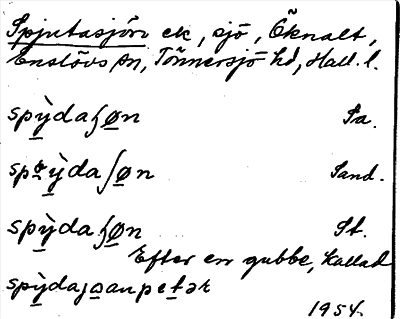 Spjutasjön ek, sjö, Öknalt,
Enslövs sn, Tönnersjö hd, Hall. l.
spỳdaʃøn Sa.
spɹỳdaʃøn Sand.
spỳdaʃøn St.
Efter en gubbe, kallad
spỳdajoanpetər
1954.